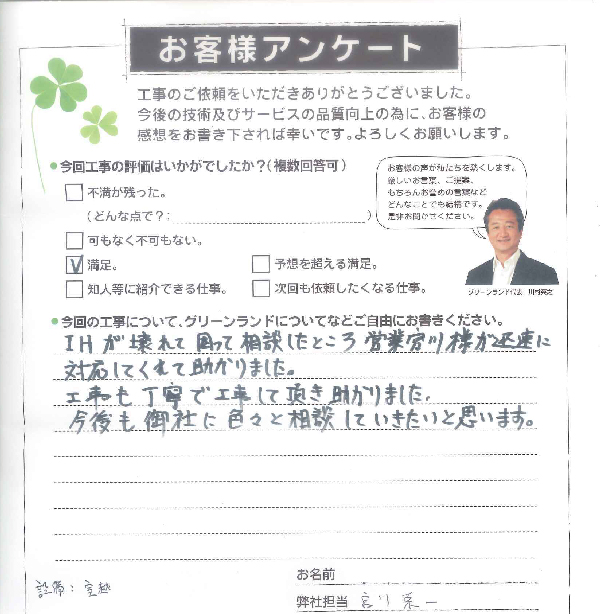 お客様アンケート
工事のご依頼をいただきありがとうございました。
今後の技術及びサービスの品質向上の為に、お客様の
感想をお書き下されば幸いです。よろしくお願いします。
●今回工事の評価はいかがでしたか?(複数回答可)
不満が残った。
(どんな点で?; )
可もなく不可もない。
満足。
予想を超える満足。
知人等に紹介できる仕事。
次回も依頼したくなる仕事。
お客様の声が私たちを熱くします。
厳しいお言葉、ご提案、
もちろんお誉めの言葉など
どんなことでも結構です。
是非お聞かせください。
グリーンランド代表
●今回の工事について、グリーンランドについてなどご自由にお書きください。
IHが壊れて困って相談したところ営業宮川様が迅速に
対応してくれて助かりました。
工事も丁寧で工事して頂き助かりました。
今後も御社に色々と相談していきたいと思います。
お名前
弊社担当 宮川
設備:室越